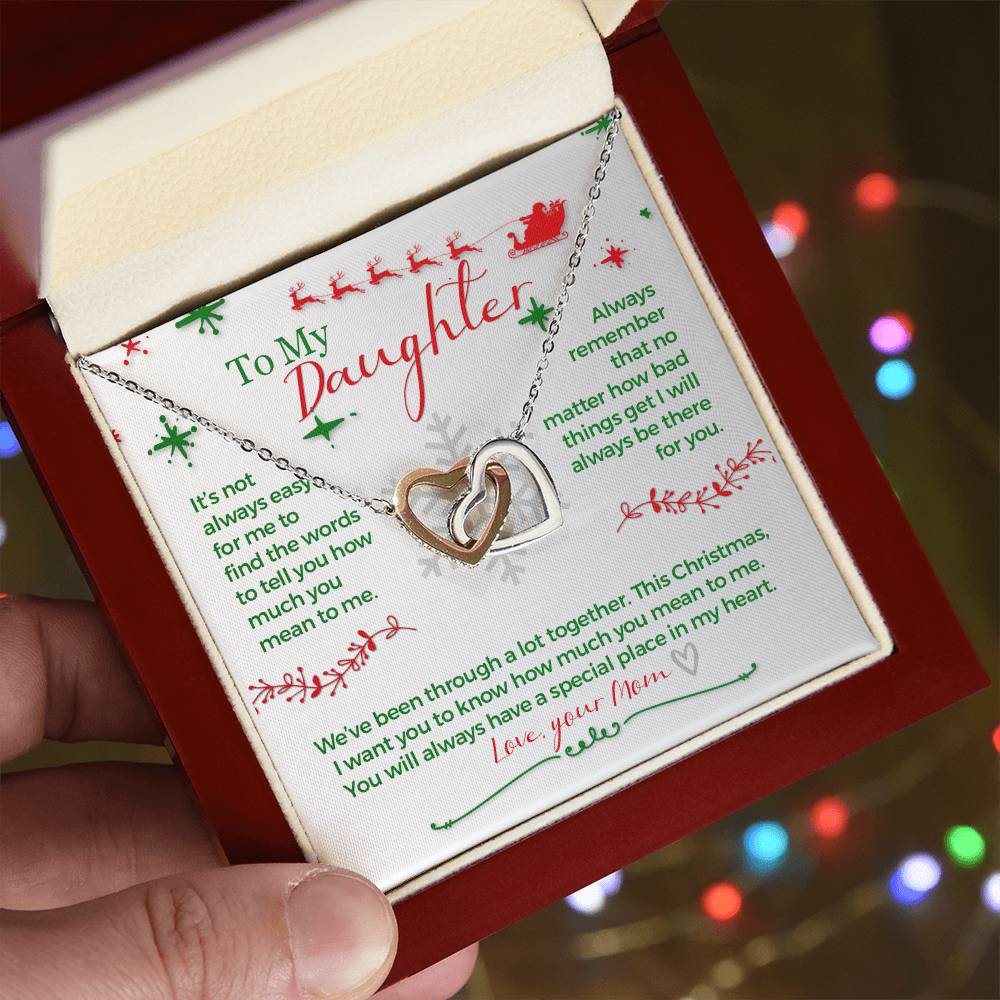 To My
Daughter
It's not
always easy
for me to
find the words
to tell you how
much you
mean to me.
Always
remember
that no
matter how bad
things get I will
always be there
for you.
We've been through a lot together. This Christmas,
I want you to know how much you mean to me.
You will always have a special place in my heart.
Love, your Mom